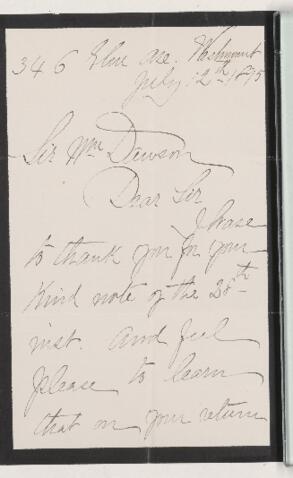 346 Elm Ave. Westmount
July 12th 1895
Sir Wm Dawson
Dear Sir
I have
to thank you for your
kind note of the 28th
inst. And feel
please to learn
that on your return